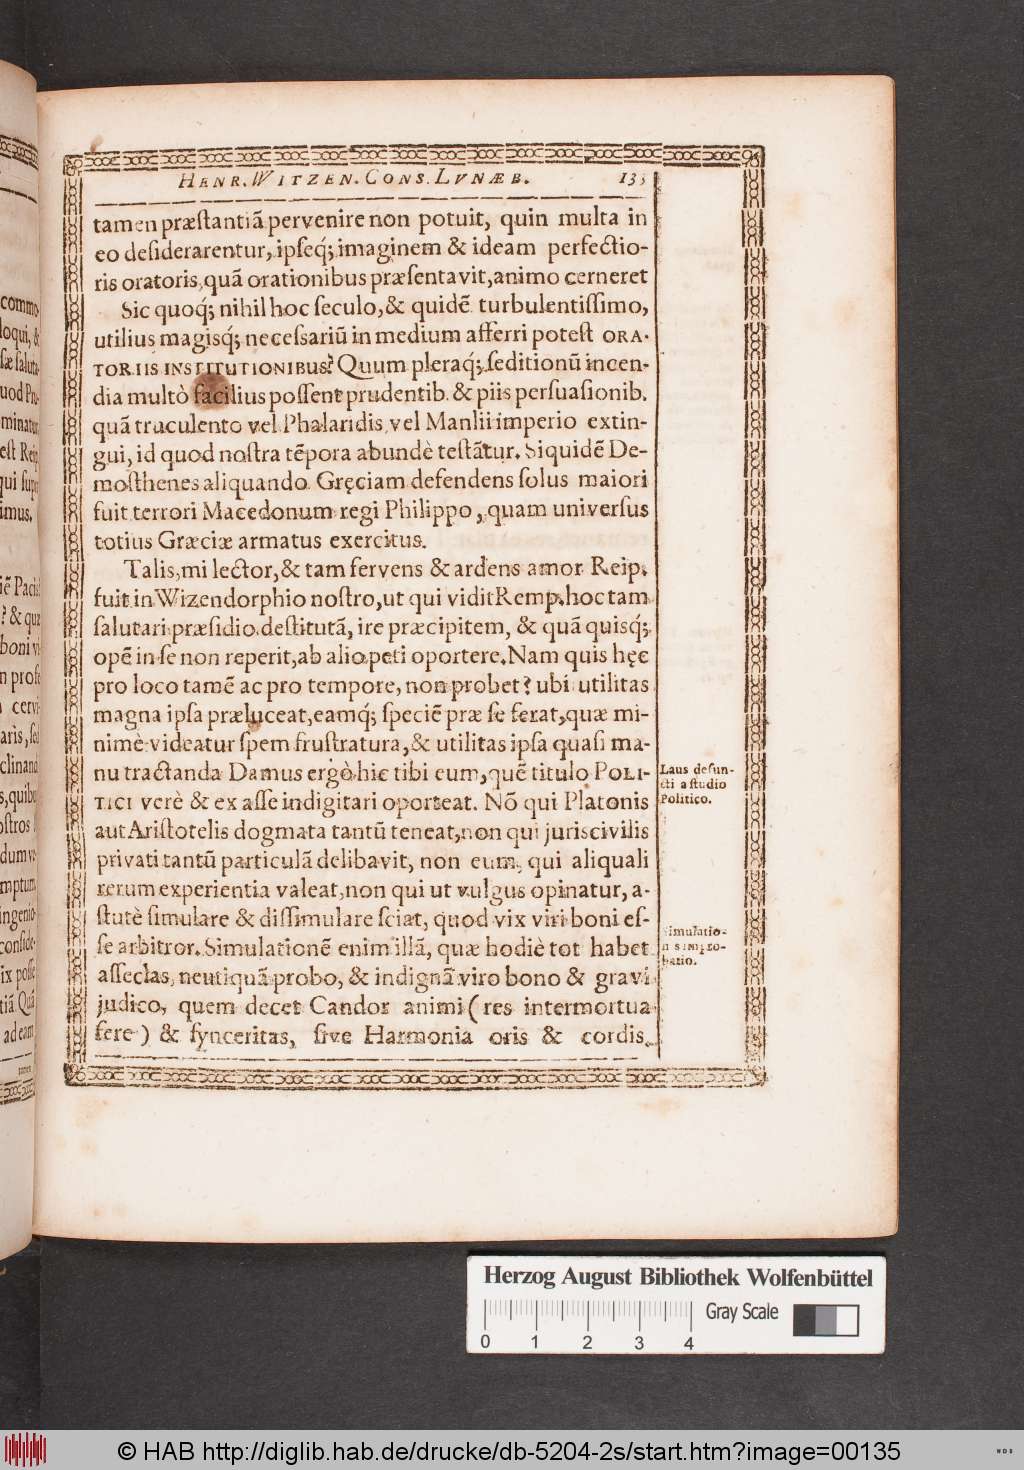 HENR. WITZEN. CONS. LVNÆB. 135
tamen præſtantiã pervenire non potuit, quin multa in
eo deſiderarentur, ipſeq́; imaginem & ideam perfectio-
ris oratoris, quã orationibus præſentavit, animo cerneret
Sic quoq́; nihil hoc ſeculo, & quidẽ turbulentiſſimo,
utilius magisq́; neceſſariũ in medium afferri poteſt ORA-
TORIIS INSTITUTIONIBUS? Quum pleraq́; ſeditionũ incen-
dia multò facilius poſſent prudentib. & piis perſuaſionib.
quã truculento vel Phalaridis, vel Manlii imperio extin-
gui, id quod noſtra tẽpora abundè teſtãtur. Siquidẽ De-
moſthenes aliquando Gręciam defendens ſolus maiori
fuit terrori Macedonum regi Philippo, quam univerſus
totius Græciæ armatus exercitus.
Talis, mi lector, & tam fervens & ardens amor Reip.
fuit in Wizendorphio noſtro, ut qui vidit Remp. hoc tam
ſalutari præſidio deſtitutã, ire præcipitem, & quã quisq́;
opẽ in ſe non reperit, ab alio peti oportere. Nam quis hęc
pro loco tamẽ ac pro tempore, non probet? ubi utilitas
magna ipſa præluceat, eamq́; ſpeciẽ præ ſe ferat, quæ mi-
nimè videatur ſpem fruſtratura, & utilitas ipſa quaſi ma-
nu tractanda Damus ergò hic tibi eum, quẽ titulo POLI-
TICI verè & ex aſſe indigitari oporteat. Nõ qui Platonis
aut Ariſtotelis dogmata tantũ teneat, non qui juris civilis
privati tantũ particulã delibavit, non eum, qui aliquali
rerum experientia valeat, non qui ut vulgus opinatur, a-
ſtutè ſimulare & diſſimulare ſciat, quod vix viri boni eſ-
ſe arbitror. Simulationẽ enim illã, quæ hodiè tot habet
aſſeclas, neutiquã probo, & indignã viro bono & gravi
judico, quem decet Candor animi (res intermortua
fere) & ſynceritas, ſive Harmonia oris & cordis.
Laus defun-
cti a ſtudio
Politico.
Simulatio-
n
batio.
commo
loqui, &
ſæ ſaluta
uod Pru-
minatur
eſt Reip
qui ſup
imus.
iẽ Paci
? & qua
boni vi
n profe
cervi
aris, ſed
clinand
s, quibu
oſtros
dum ve
mptum
ingenio
conſide-
ix poſſe
tiã Quã
ad eam
Herzog August Bibliothek Wolfenbüttel
Gray Scale
0 1 2 3 4
© HAB http://diglib.hab.de/drucke/db-5204-2s/start.htm?image=00135